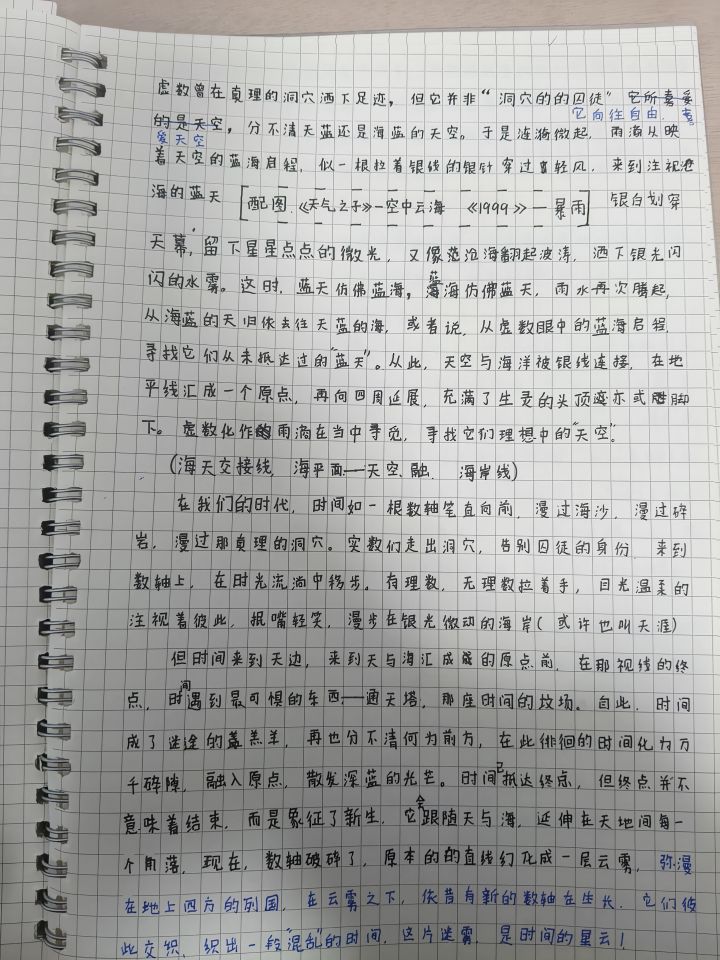 虚数曾在真理的洞穴洒下足迹，但它并非“洞穴的的囚徒”它所喜爱
它向往自由，喜
的是天空，分不清天蓝还是海蓝的天空。于是涟漪微起，雨滴从映
爱天空
着天空的蓝海启程，似一根拉着银线的银针穿过轻风，来到注视沧
海的蓝天 [配图.《天气之子》—空中云海 《1999》—暴雨] 银白划穿
天幕，留下星星点点的微光，又像苍沧海翻起波涛，洒下银光闪
闪的水雾。这时，蓝天仿佛蓝海，蓝海仿佛蓝天，雨水再次腾起，
从海蓝的天归依去往天蓝的海，或者说，从虚数眼中的蓝海启程，
寻找它们从未抵达过的“蓝天”。从此，天空与海洋被银线连接，在地
平线汇成一个原点，再向四周延展，充满了生灵的头顶亦或脚
下。虚数化作雨滴在当中寻觅，寻找它们理想中的“天空”。
（海天交接线，海平面——天空、融， 海岸线）
在我们的时代，时间如一根数轴笔直向前，漫过海沙，漫过碎
岩，漫过那真理的洞穴。实数们走出洞穴，告别囚徒的身份，来到
数轴上，在时光流淌中移步。有理数，无理数拉着手，目光温柔的
注视着彼此，抿嘴轻笑，漫步在银光微动的海岸（或许也叫天涯）
但时间来到天边，来到天与海汇成的原点前，在那视线的终
点，时间遇到最可惧的东西——通天塔，那座时间的坟场。自此，时间
成了迷途的羔羊，再也分不清何为前方，在此徘徊的时间化为万
千碎隙，融入原点，散发深蓝的光芒。时间已抵达终点，但终点并不
意味着结束，而是象征了新生，它会跟随天与海，延伸在天地间每一
个角落，现在，数轴破碎了，原本的的直线幻化成一层云雾，弥漫
在地上四方的列国，在云雾之下，依昔有新的数轴在生长，它们彼
此交织，织出一段“混乱”的时间，这片迷雾，是时间的星云！